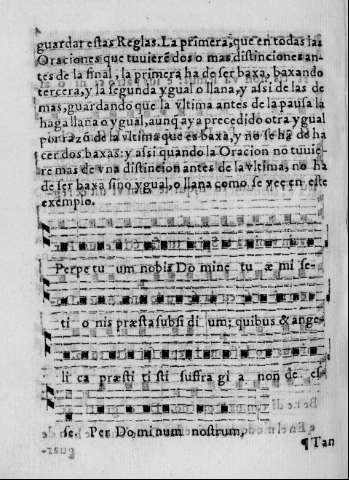 guardar estas Reglas. La primera, que en todas las
Oraciones que tuuierẽ dos o mas distinciones an-
tes de la final, la primera ha de ser baxa, baxando
tercera, y la segunda ygual o llana, y assi de las de
mas, guardando que la vltima antes de la pausa la
haga llana o ygual, aunq̃ aya precedido otra ygual
por razõ de la vltima que es baxa, y no se hã de ha
cer dos baxas: y assi quando la Oracion no tuuie-
re mas de vna distincion antes de la vltima, no ha
de ser baxa sino ygual, o llana como se vee en este
exemplo.
Perpe tu um nobis Do mine tu æ mi se-
ti o nis præsta subsi di um; quibus & ange-
li ca præsti ti sti suffra gi a non de es-
se. Per Do mi num nostrum,
¶ Tan